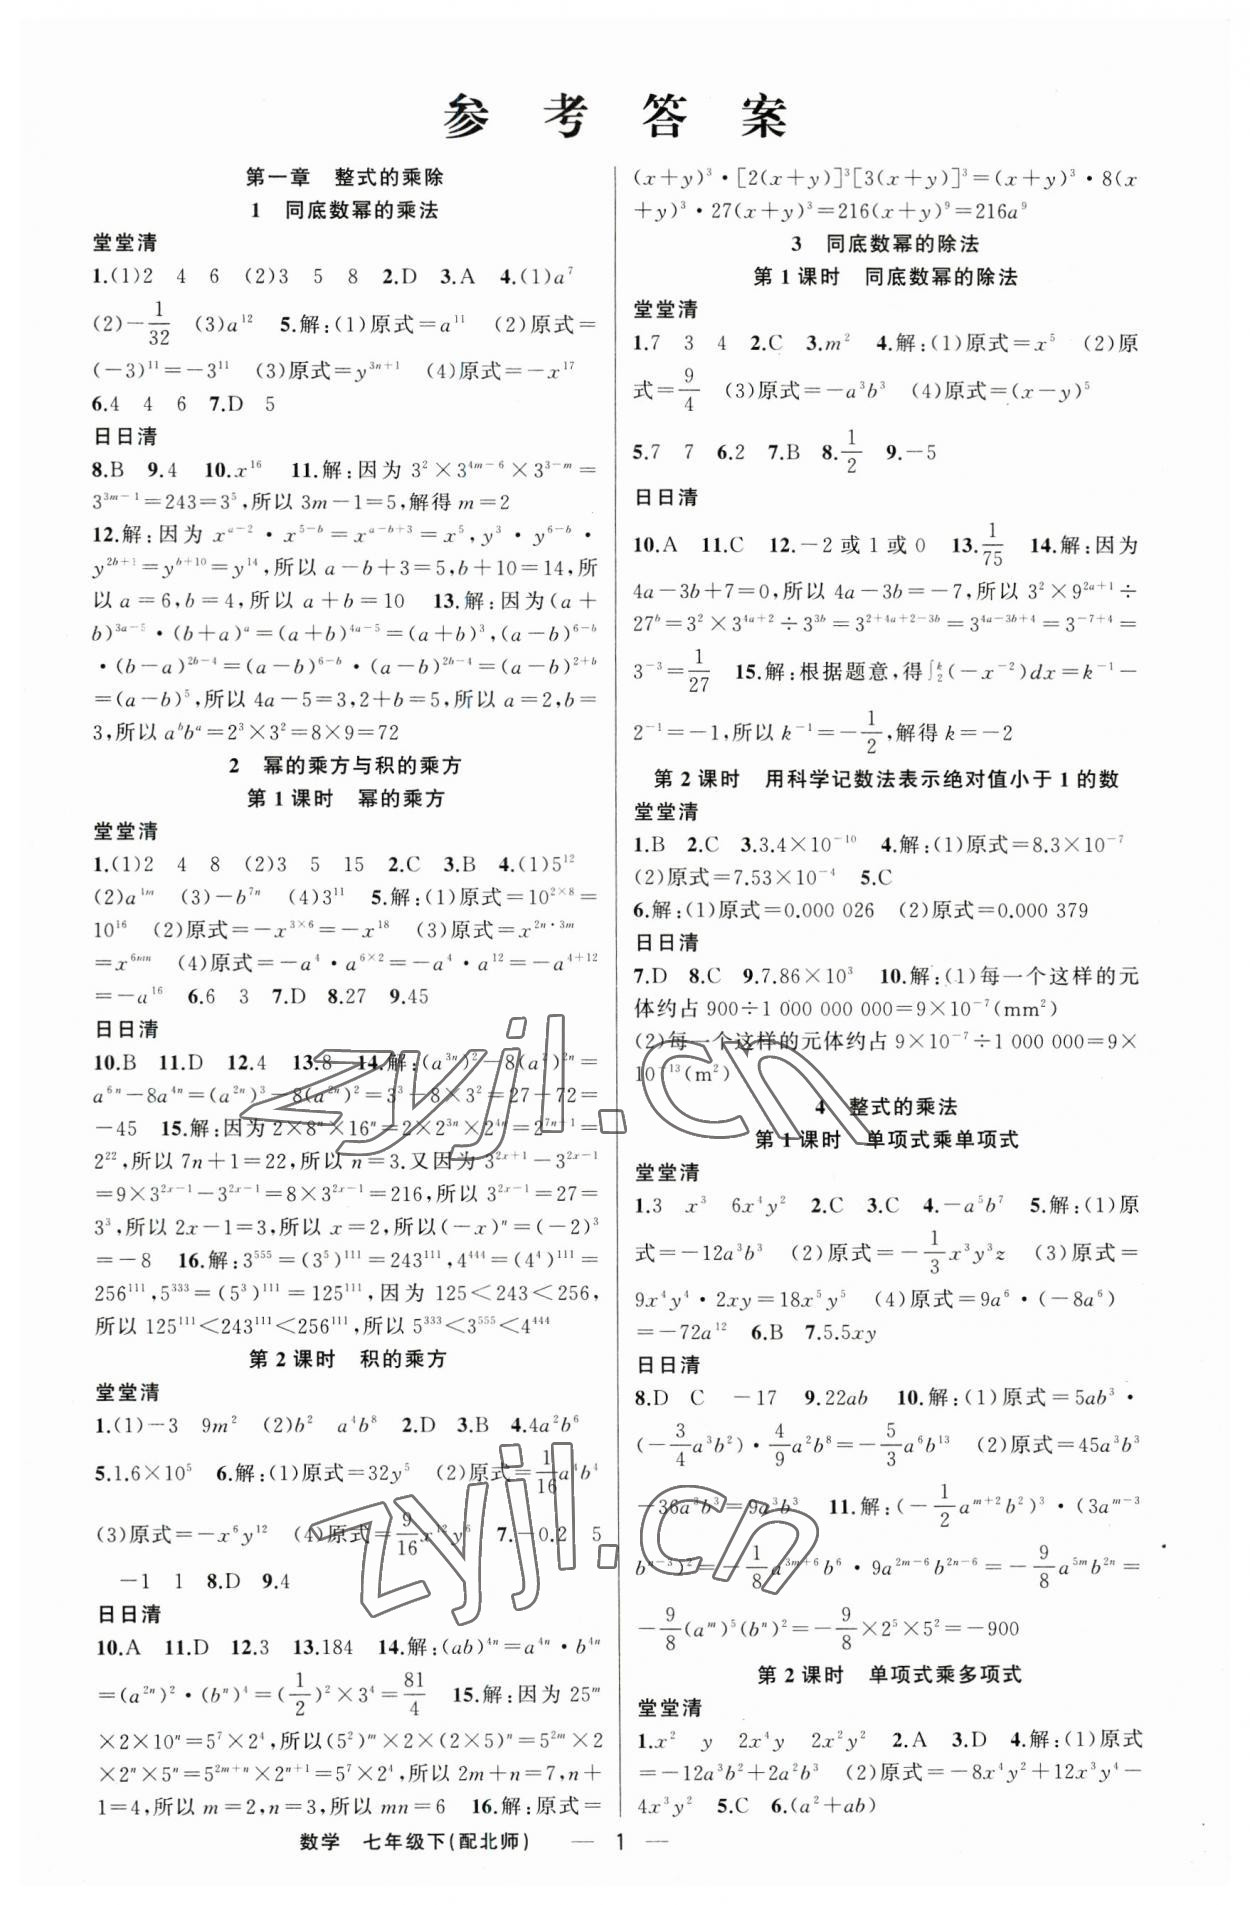 参考答案
第一章 整式的乘除
1 同底数幂的乘法
堂堂清
1.(1)2 4 6 (2)3 5 8 2.D 3.A 4.(1)a⁷
(2)-1/32 (3)a¹² 5.解:(1)原式=a¹¹ (2)原式=
(-3)¹¹=-3¹¹ (3)原式=y³ⁿ⁺¹ (4)原式=-x¹⁷
6.4 4 6 7.D 5
日日清
8.B 9.4 10.x¹⁶ 11.解:因为 3²×3^(4m-6)×3^(3-m)=
3^(3m-1)=243=3⁵,所以 3m-1=5,解得 m=2
12.解:因为 x^(a-2)·x^(5-b)=x^(a-b+3)=x⁵,y³·y^(6-b)·
y^(2b+1)=y^(b+10)=y¹⁴,所以 a-b+3=5,b+10=14,所
以 a=6,b=4,所以 a+b=10 13.解:因为(a+
b)^(3a-5)·(b+a)^a=(a+b)^(4a-5)=(a+b)³,(a-b)^(6-b)
·(b-a)^(2b-4)=(a-b)^(6-b)·(a-b)^(2b-4)=(a-b)^(2+b)
=(a-b)⁵,所以 4a-5=3,2+b=5,所以 a=2,b=
3,所以 a^b b^a=2³×3²=8×9=72
2 幂的乘方与积的乘方
第1课时 幂的乘方
堂堂清
1.(1)2 4 8 (2)3 5 15 2.C 3.B 4.(1)5¹²
(2)a^(4m) (3)-b^(7n) (4)3¹¹ 5.解:(1)原式=10^(2×8)=
10¹⁶ (2)原式=-x^(3×6)=-x¹⁸ (3)原式=x^(2n·3m)
=x^(6mn) (4)原式=-a⁴·a^(6×2)=-a⁴·a¹²=-a^(4+12)
=-a¹⁶ 6.6 3 7.D 8.27 9.45
日日清
10.B 11.D 12.4 13.8 14.解:(a^(3n))²-8(a²)^(2n)=
a^(6n)-8a^(4n)=(a^(2n))³-8(a^(2n))²=3³-8×3²=27-72=
-45 15.解:因为 2×8ⁿ×16ⁿ=2×2^(3n)×2^(4n)=2^(7n+1)=
2²²,所以 7n+1=22,所以 n=3.又因为 3^(2x+1)-3^(2x-1)
=9×3^(2x-1)-3^(2x-1)=8×3^(2x-1)=216,所以 3^(2x-1)=27=
3³,所以 2x-1=3,所以 x=2,所以(-x)ⁿ=(-2)³
=-8 16.解:3⁵⁵⁵=(3⁵)¹¹¹=243¹¹¹,4⁴⁴⁴=(4⁴)¹¹¹=
256¹¹¹,5³³³=(5³)¹¹¹=125¹¹¹,因为 125<243<256,
所以 125¹¹¹<243¹¹¹<256¹¹¹,所以 5³³³<3⁵⁵⁵<4⁴⁴⁴
第2课时 积的乘方
堂堂清
1.(1)-3 9m² (2)b² a⁴b⁸ 2.D 3.B 4.4a²b⁶
5.1.6×10⁵ 6.解:(1)原式=32y⁵ (2)原式=1/16a⁴b⁴
(3)原式=-x⁶y¹² (4)原式=9/16x¹²y⁶ 7.-0.2 5
-1 1 8.D 9.4
日日清
10.A 11.D 12.3 13.184 14.解:(ab)^(4n)=a^(4n)·b^(4n)
=(a^(2n))²·(bⁿ)⁴=(1/2)²×3⁴=81/4 15.解:因为 25^m
×2×10ⁿ=5⁷×2⁴,所以(5²)^m×2×(2×5)ⁿ=5^(2m)×2
×2ⁿ×5ⁿ=5^(2m+n)×2^(n+1)=5⁷×2⁴,所以 2m+n=7,n+
1=4,所以 m=2,n=3,所以 mn=6 16.解:原式=
(x+y)³·[2(x+y)]³[3(x+y)]³=(x+y)³·8(x
+y)³·27(x+y)³=216(x+y)⁹=216a⁹
3 同底数幂的除法
第1课时 同底数幂的除法
堂堂清
1.7 3 4 2.C 3.m² 4.解:(1)原式=x⁵ (2)原
式=9/4 (3)原式=-a³b³ (4)原式=(x-y)⁵
5.7 7 6.2 7.B 8.1/2 9.-5
日日清
10.A 11.C 12.-2或1或0 13.1/75 14.解:因为
4a-3b+7=0,所以 4a-3b=-7,所以 3²×9^(2a+1)÷
27^b=3²×3^(4a+2)÷3^(3b)=3^(2+4a+2-3b)=3^(4a-3b+4)=3^(-7+4)=
3⁻³=1/27 15.解:根据题意,得∫₂ᵏ(-x⁻²)dx=k⁻¹-
2⁻¹=-1,所以 k⁻¹=-1/2,解得 k=-2
第2课时 用科学记数法表示绝对值小于1的数
堂堂清
1.B 2.C 3.3.4×10⁻¹⁰ 4.解:(1)原式=8.3×10⁻⁷
(2)原式=7.53×10⁻⁴ 5.C
6.解:(1)原式=0.000 026 (2)原式=0.000 379
日日清
7.D 8.C 9.7.86×10³ 10.解:(1)每一个这样的元
体约占 900÷1 000 000 000=9×10⁻⁷(mm²)
(2)每一个这样的元体约占 9×10⁻⁷÷1 000 000=9×
10⁻¹³(m²)
4 整式的乘法
第1课时 单项式乘单项式
堂堂清
1.3 x³ 6x⁴y² 2.C 3.C 4.-a⁵b⁷ 5.解:(1)原
式=-12a³b³ (2)原式=-1/3x³y³z (3)原式=
9x⁴y⁴·2xy=18x⁵y⁵ (4)原式=9a⁶·(-8a⁶)
=-72a¹² 6.B 7.5.5xy
日日清
8.D C -17 9.22ab 10.解:(1)原式=5ab³·
(-3/4a³b²)·4/9a²b⁸=-5/3a⁶b¹³ (2)原式=45a³b³
-36a³b³=9a³b³ 11.解:(-1/2a^(m+2)b²)³·(3a^(m-3)
b^(n-3))²=-1/8a^(3m+6)b⁶·9a^(2m-6)b^(2n-6)=-9/8a^(5m)b^(2n)=
-9/8(a^m)⁵(bⁿ)²=-9/8×2⁵×5²=-900
第2课时 单项式乘多项式
堂堂清
1.x² y 2x⁴y 2x²y² 2.A 3.D 4.解:(1)原式
=-12a³b²+2a²b² (2)原式=-8x⁴y²+12x³y⁴-
4x³y² 5.C 6.(a²+ab)
数学 七年级下(配北师) — 1 —
zyjl.cn
zyjl.cn